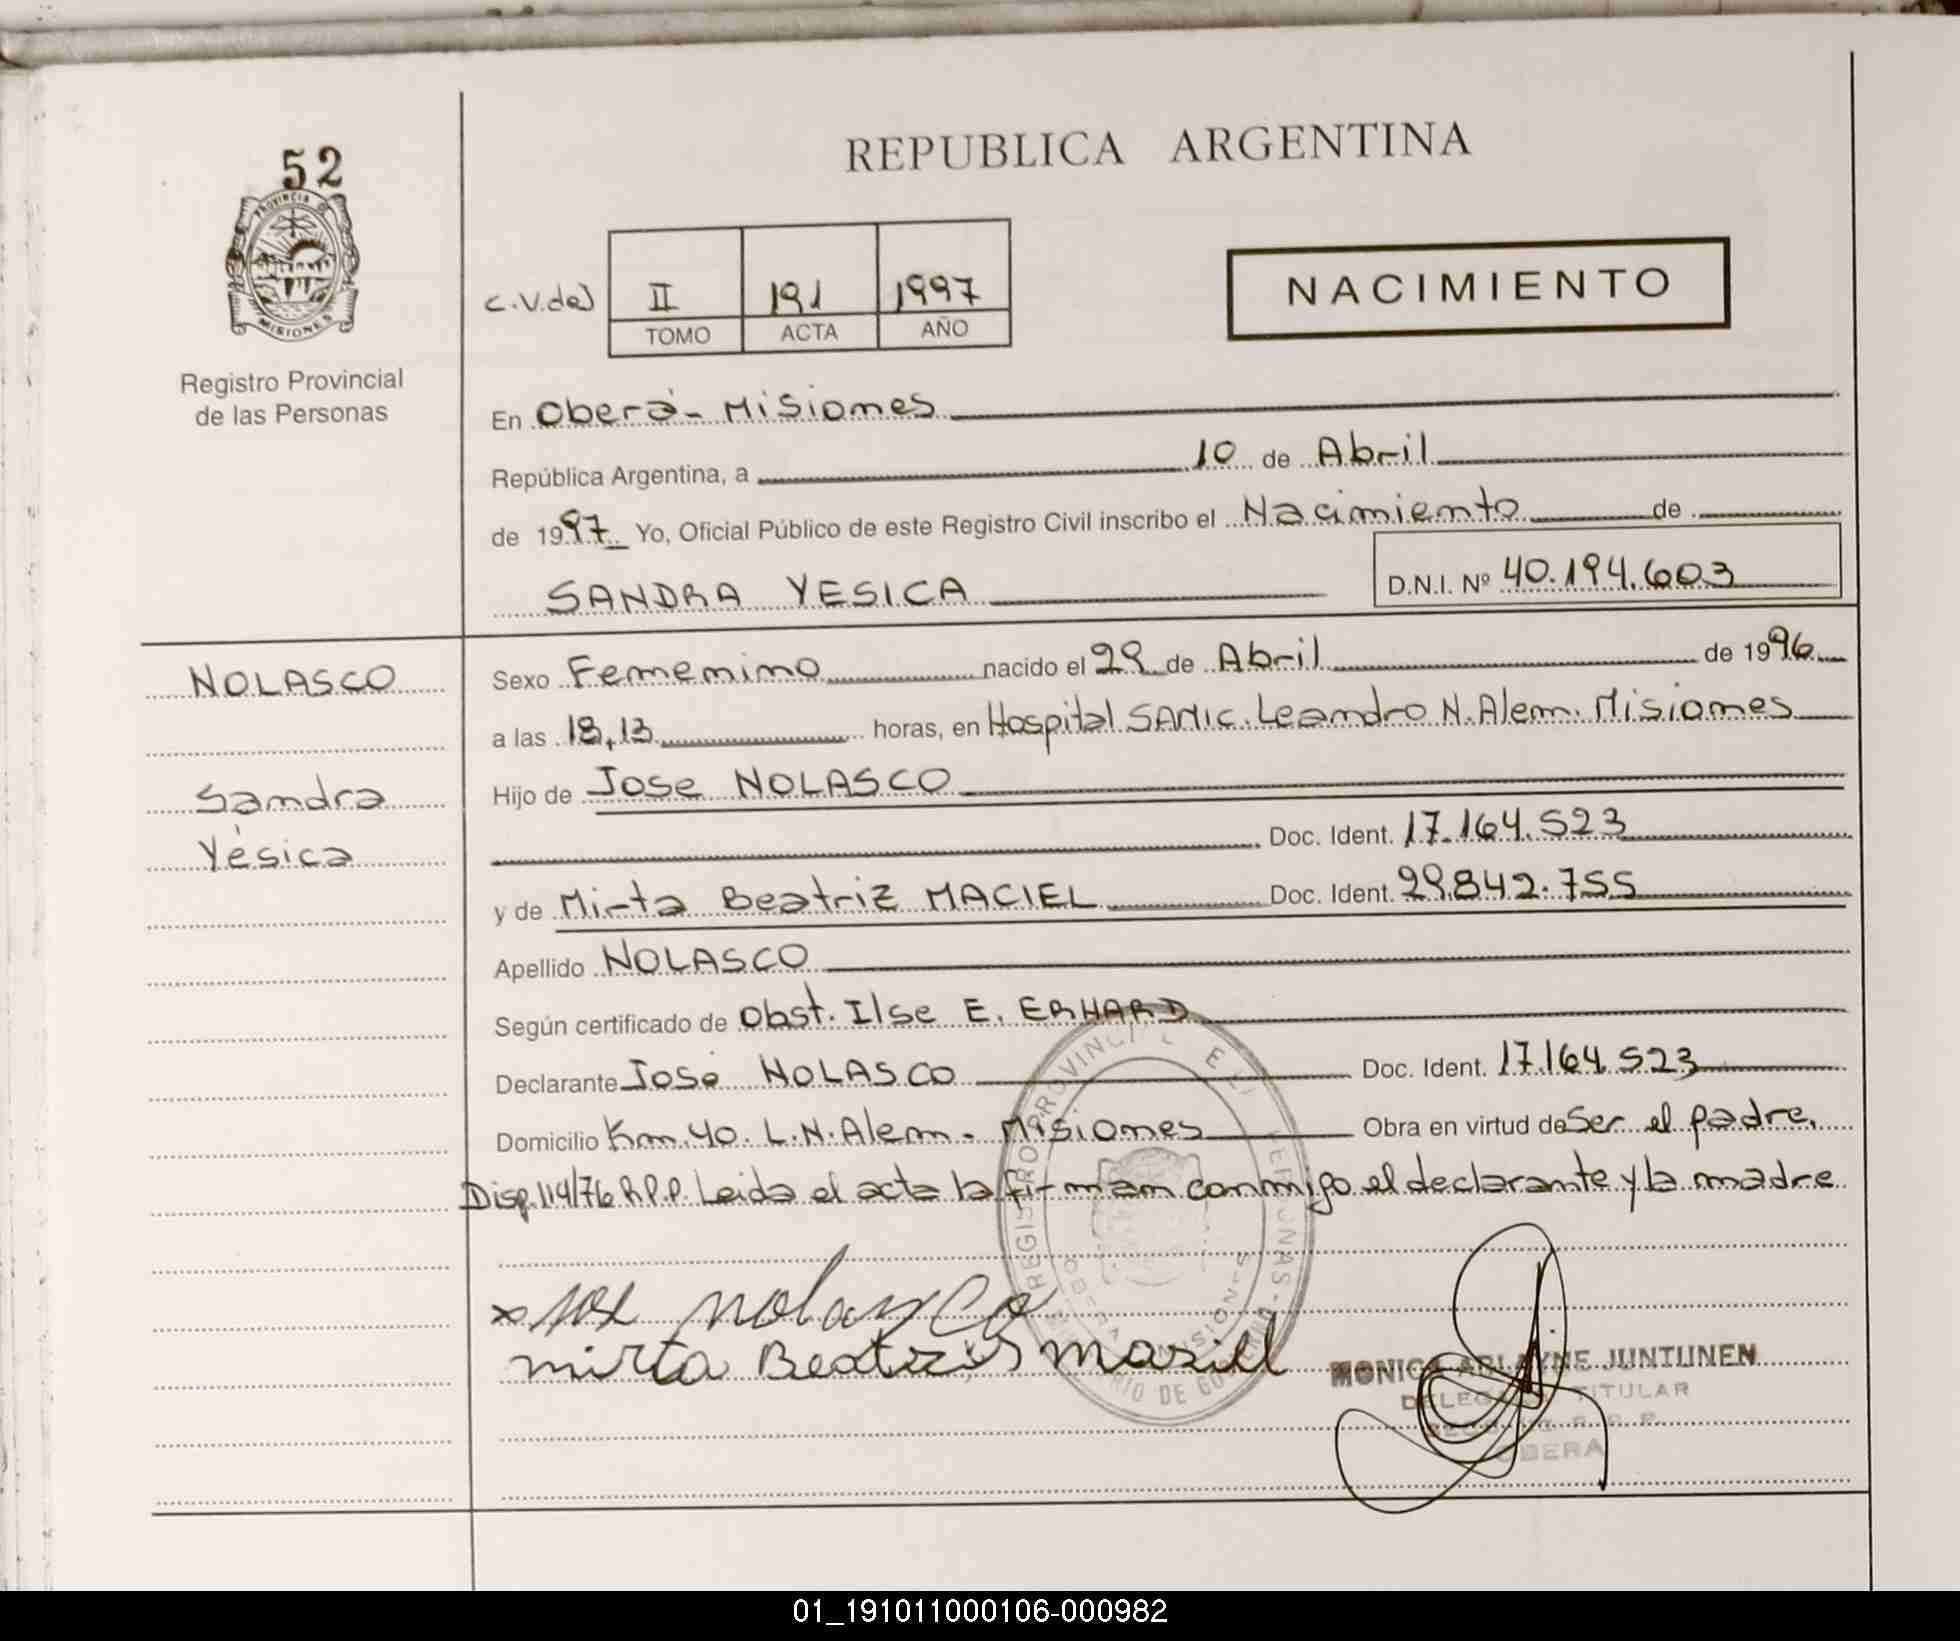 52
PROVINCIA DE
MISIONES
Registro Provincial
de las Personas
REPUBLICA ARGENTINA
C.V.de)
II 191 1997
TOMO ACTA AÑO
NACIMIENTO
En Oberá - Misiones
República Argentina, a 10 de Abril
de 1997 Yo, Oficial Público de este Registro Civil inscribo el Nacimiento de
SANDRA YESICA D.N.I. Nº 40.194.603
NOLASCO
Sandra
Yésica
Sexo Femenino nacido el 29 de Abril de 1996
a las 18,13 horas, en Hospital SAMIC. Leandro N. Alem. Misiones
Hijo de Jose NOLASCO
Doc. Ident. 17.164.523
y de Mirta Beatriz MACIEL Doc. Ident. 29.842.755
Apellido NOLASCO
Según certificado de Obst. Ilse E. ERHARD
Declarante José NOLASCO Doc. Ident. 17.164.523
Domicilio Km. 40. L.N. Alem. Misiones Obra en virtud de Ser el padre.
Disp. 114/76 R.P.P. Leida el acta la firman conmigo el declarante y la madre
nolasco
mirta Beatris
MONICA ARLAYNE JUNTUNEN
TITULAR
OBERA
01_191011000106-000982